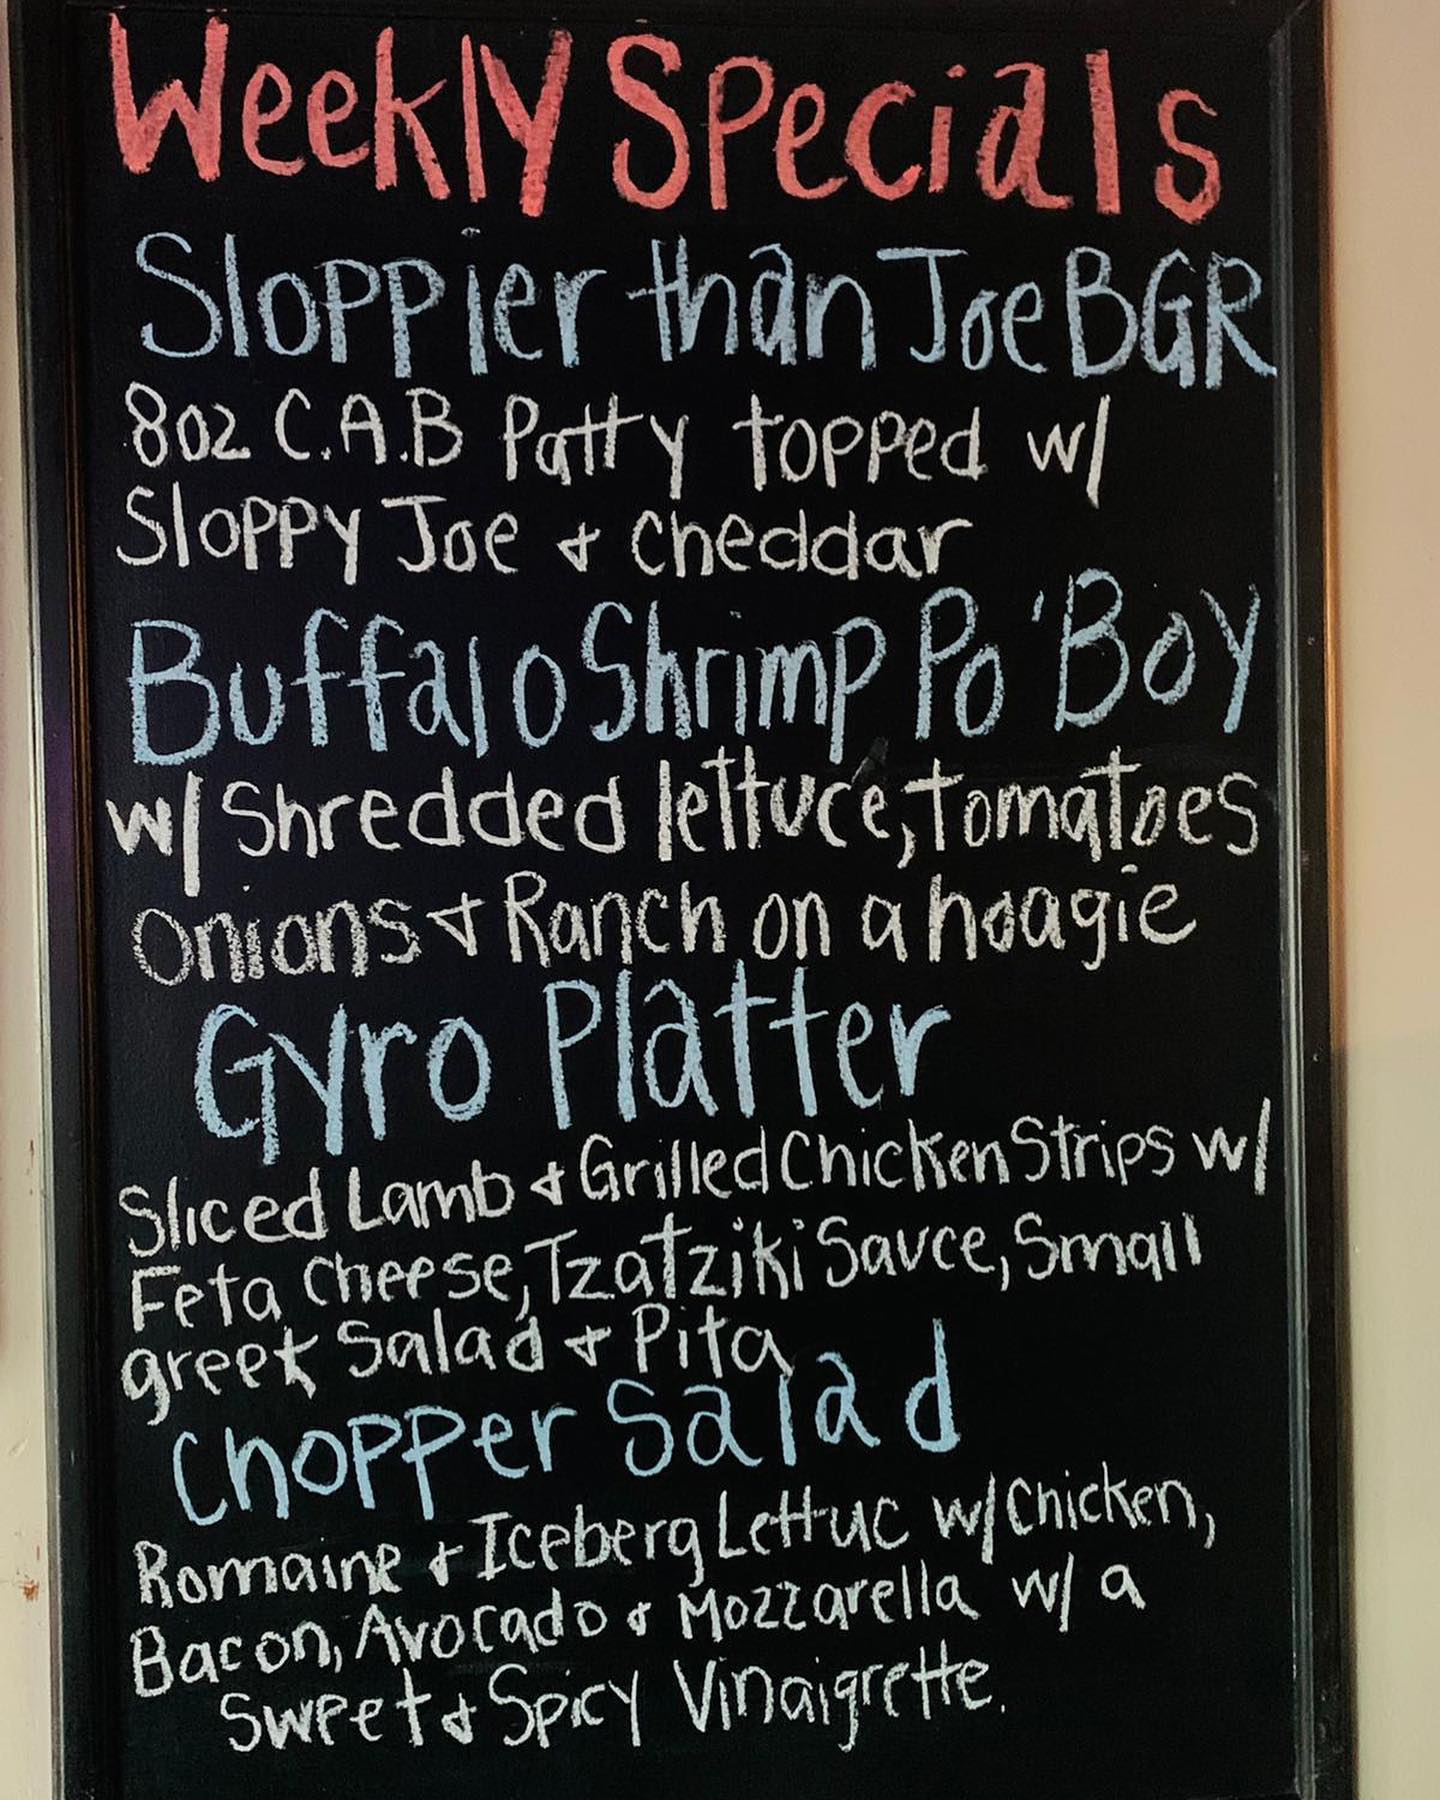 Weekly Specials
Sloppier than Joe BGR
8oz C.A.B Patty topped w/
Sloppy Joe & Cheddar
Buffalo Shrimp Po'Boy
w/ Shredded lettuce, Tomatoes
Onions & Ranch on a hoagie
Gyro Platter
Sliced Lamb & Grilled Chicken Strips w/
Feta Cheese, Tzatziki Sauce, Small
greek Salad & Pita
Chopper Salad
Romaine & Iceberg Lettuc w/ Chicken,
Bacon, Avocado & Mozzarella w/ a
Sweet & Spicy Vinaigrette.